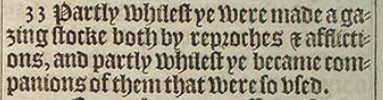 33 Partly whilest ye were made a ga-
zing stocke both by reproches & afflicti-
ons, and partly whilest ye became com-
panions of them that were so vsed.